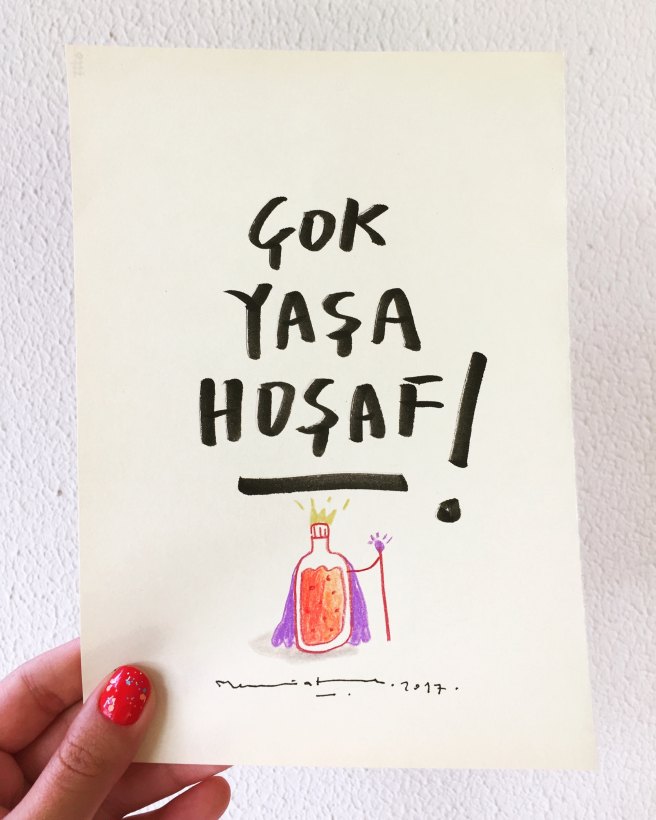 ÇOK
YAŞA
HOŞAF!
2017.